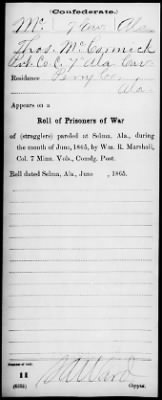 (Confederate.)
Mc 7 Cav Ala
Thos. McCormick
Pvt. Co. C, 7 Ala. Cav
Residence Perry Co.,
Ala.
Appears on a
Roll of Prisoners of War
of (stragglers) paroled at Selma, Ala., during
the month of June, 1865, by Wm. R. Marshall,
Col. 7 Minn. Vols., Comdg. Post.
Roll dated Selma, Ala., June , 1865.
Number of roll:
11
(639b)
Copyist.